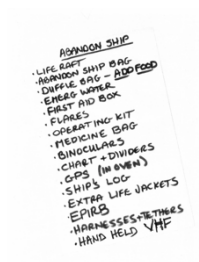 ABANDON SHIP
· LIFE RAFT
· ABANDON SHIP BAG
· DUFFLE BAG – ADD FOOD
· EMERG WATER
· FIRST AID BOX
· FLARES
· OPERATING KIT
· MEDICINE BAG
· BINOCULARS
· CHART + DIVIDERS
· GPS (IN OVEN)
· SHIP'S LOG
· EXTRA LIFE JACKETS
· EPIRB
· HARNESSES + TETHERS
· HAND HELD VHF